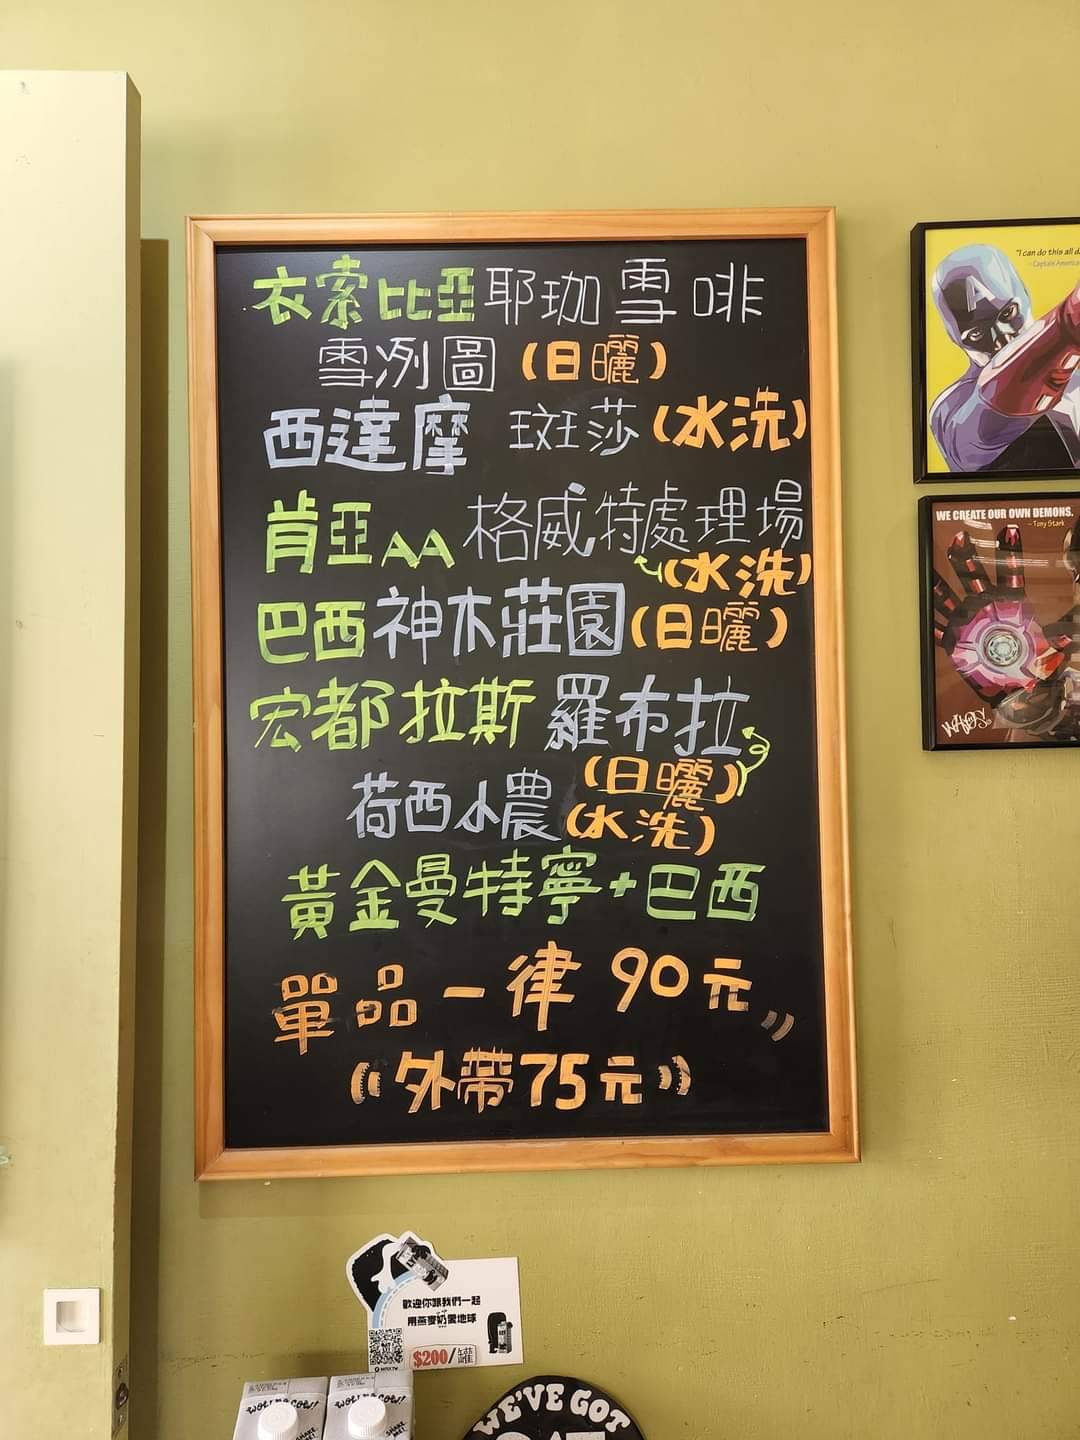 衣索比亞 耶珈雪啡
雪冽圖 (日曬)
西達摩 斑莎 (水洗)
肯亞AA 格威特處理場
(水洗)
巴西 神木莊園 (日曬)
宏都拉斯 羅布拉
(日曬)
荷西小農 (水洗)
黃金曼特寧+巴西
單品一律 90元
((外帶75元))
"I can do this all d
- Captain America
WE CREATE OUR OWN DEMONS.
- Tony Stark
歡迎你跟我們一起
用燕麥奶愛地球
$200/罐
WE'VE GOT